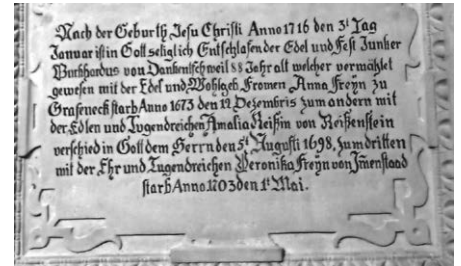 Nach der Geburth Jesu Christi Anno 1716 den 3t Tag
Januar ist in Gott seliglich Entschlafen der Edel und Fest Junker
Burkhardus von Dankentschweil 88 Jahr alt welcher vermählet
gewesen mit der Edel und Wohlgeb. Fromen Anna Freÿn zu
Grafeneck starb Anno 1673 den 12 Dezembris zum andern mit
der Edlen und Tugendreichen Amalia Reißin von Reißenstein
verschied in Gott dem Herrn den 5t Augusti 1698, zum dritten
mit der Ehr und Tugendreichen Veronika Freÿn von Jmenstaad
starb Anno 1703 den 1t Mai.